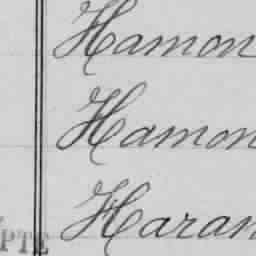 Hamon
Hamon
Haran
PTE